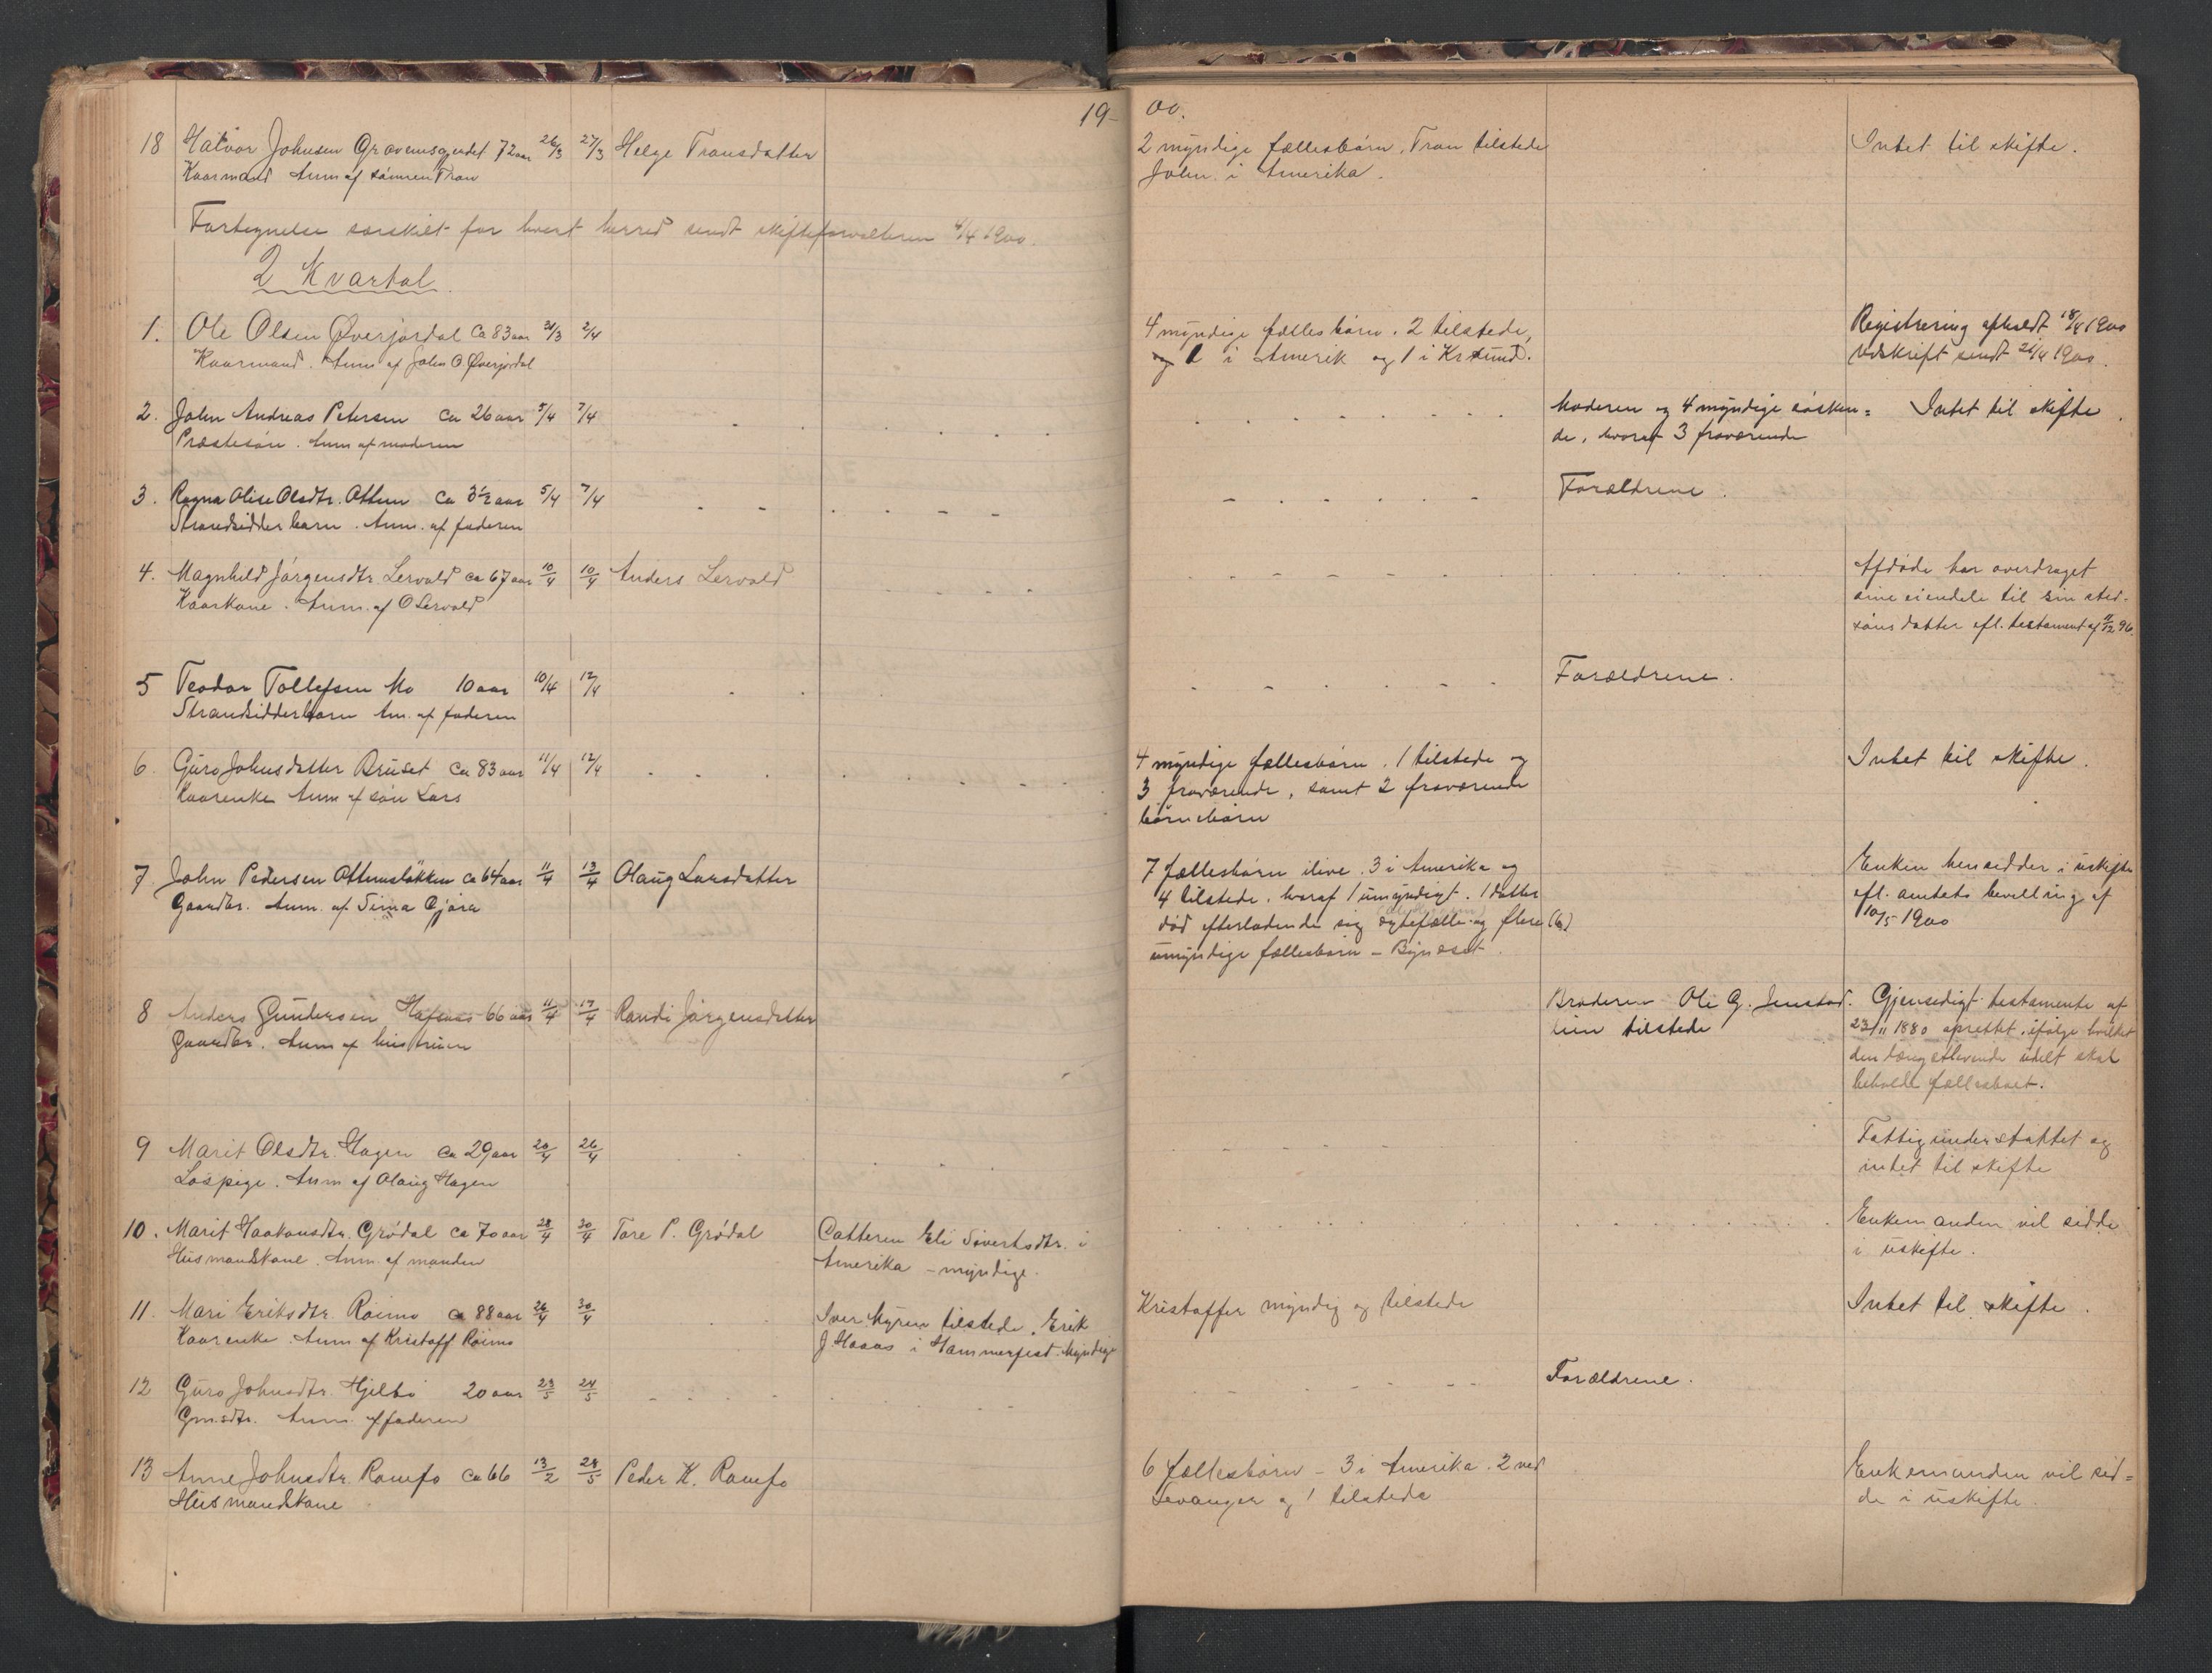 19-00.
18 Halvor Johnsen Gravemsgjerdet 72 aar 26/3 27/3 Helge Transdatter 2 myndige fællesbørn. Tron tilstede Intet til skifte.
Kaarmand Anm af sønnen Tron John i Amerika.
Fortegnelse særskilt for hvert herred sendt skifteforvalteren 4/4 1900.
2 Kvartal.
1. Ole Olsen Øverjordal Ca 83 aar 31/3 2/4 4 myndige fællesbørn. 2 tilstede, Registrering afholdt 18/4 1900
Kaarmand. Anm af John O. Øverjordal og 1 i Amerik og 1 i Krsund. Udskrift sendt 21/4 1900.
2. John Andreas Petersen ca 26 aar 5/4 7/4 Moderen og 4 myndige søsken= Intet til skifte
Præstesøn. Anm af moderen de, hvoraf 3 fraværende
3. Ragna Olise Olsdtr. Ottem ca 3½ aar 5/4 7/4 Forældrene.
Strandsidderbarn. Anm. af faderen
4. Magnhild Jørgensdtr Lervold ca 67 aar 10/4 10/4 Anders Lervold Afdøde har overdraget
Kaarkone. Anm. af O Lervold sine eiendele til sin sted-
sønsdatter efl. testament af 11/12 96.
5 Teodor Tollefsen Mo 10 aar 10/4 12/4 Forældrene.
Strandsidderbarn Am. af faderen
6. Guro Johnsdatter Bruset ca 83 aar 11/4 12/4 4 myndige fællesbørn. 1 tilstede og Intet til skifte.
Kaarenke Anm af søn Lars 3 fraværende, samt 2 fraværende
børnebørn
7. John Pedersen Ottemsløkken ca 64 aar 11/4 13/4 Olaug Larsdatter 7 fællesbørn ilive. 3 i Amerika og Enken hensidder i uskifte
Gaardbr. Anm. af Sima Gjøra 4 tilstede, hvoraf 1 umyndigt. 1 datter efl. amtets bevilling af
død efterladende sig ægtefælle og flere (6) 10/5 1900
umyndige fællesbørn - Bynæset.
8 Anders Gundersen Hafsaas 66 aar 11/4 17/4 Randi Jørgensdatter Broderen Ole G. Jenstad- Gjensidigt testamente af
Gaardbr. Anm af hustruen lien tilstede 23/11 1880 oprettet, ifølge hvilket
den længstlevende udelt skal
beholde fællesboet.
9 Marit Olsdtr. Hagen ca 29 aar 20/4 26/4 Fattigunderstøttet og
Løspige. Anm af Olaug Hagen intet til skifte
10. Marit Haakonsdtr. Grødal ca 70 aar 28/4 30/4 Tore P. Grødal Datteren Eli Sivertsdtr. i Enkemanden vil sidde
Husmandskone. Anm. af manden Amerika - myndige. i uskifte.
11. Mari Eriksdtr. Roimo ca 88 aar 26/4 30/4 Iver Myren tilstede. Erik Kristoffer myndig og tilstede Intet til skifte.
Kaarenke. Anm af Kristoff Roimo J. Haaas i Hammerfest. Myndige
12 Guro Johnsdtr. Hjelbø 20 aar 23/5 24/5 Forældrene.
Gm.sdtr. Anm. af faderen
13 Anne Johnsdtr. Romfo ca 66 13/2 28/5 Peder K. Romfo 6 fællesbørn - 3 i Amerika. 2 ved Enkemanden vil sid=
Husmandskone Levanger og 1 tilstede de i uskifte.